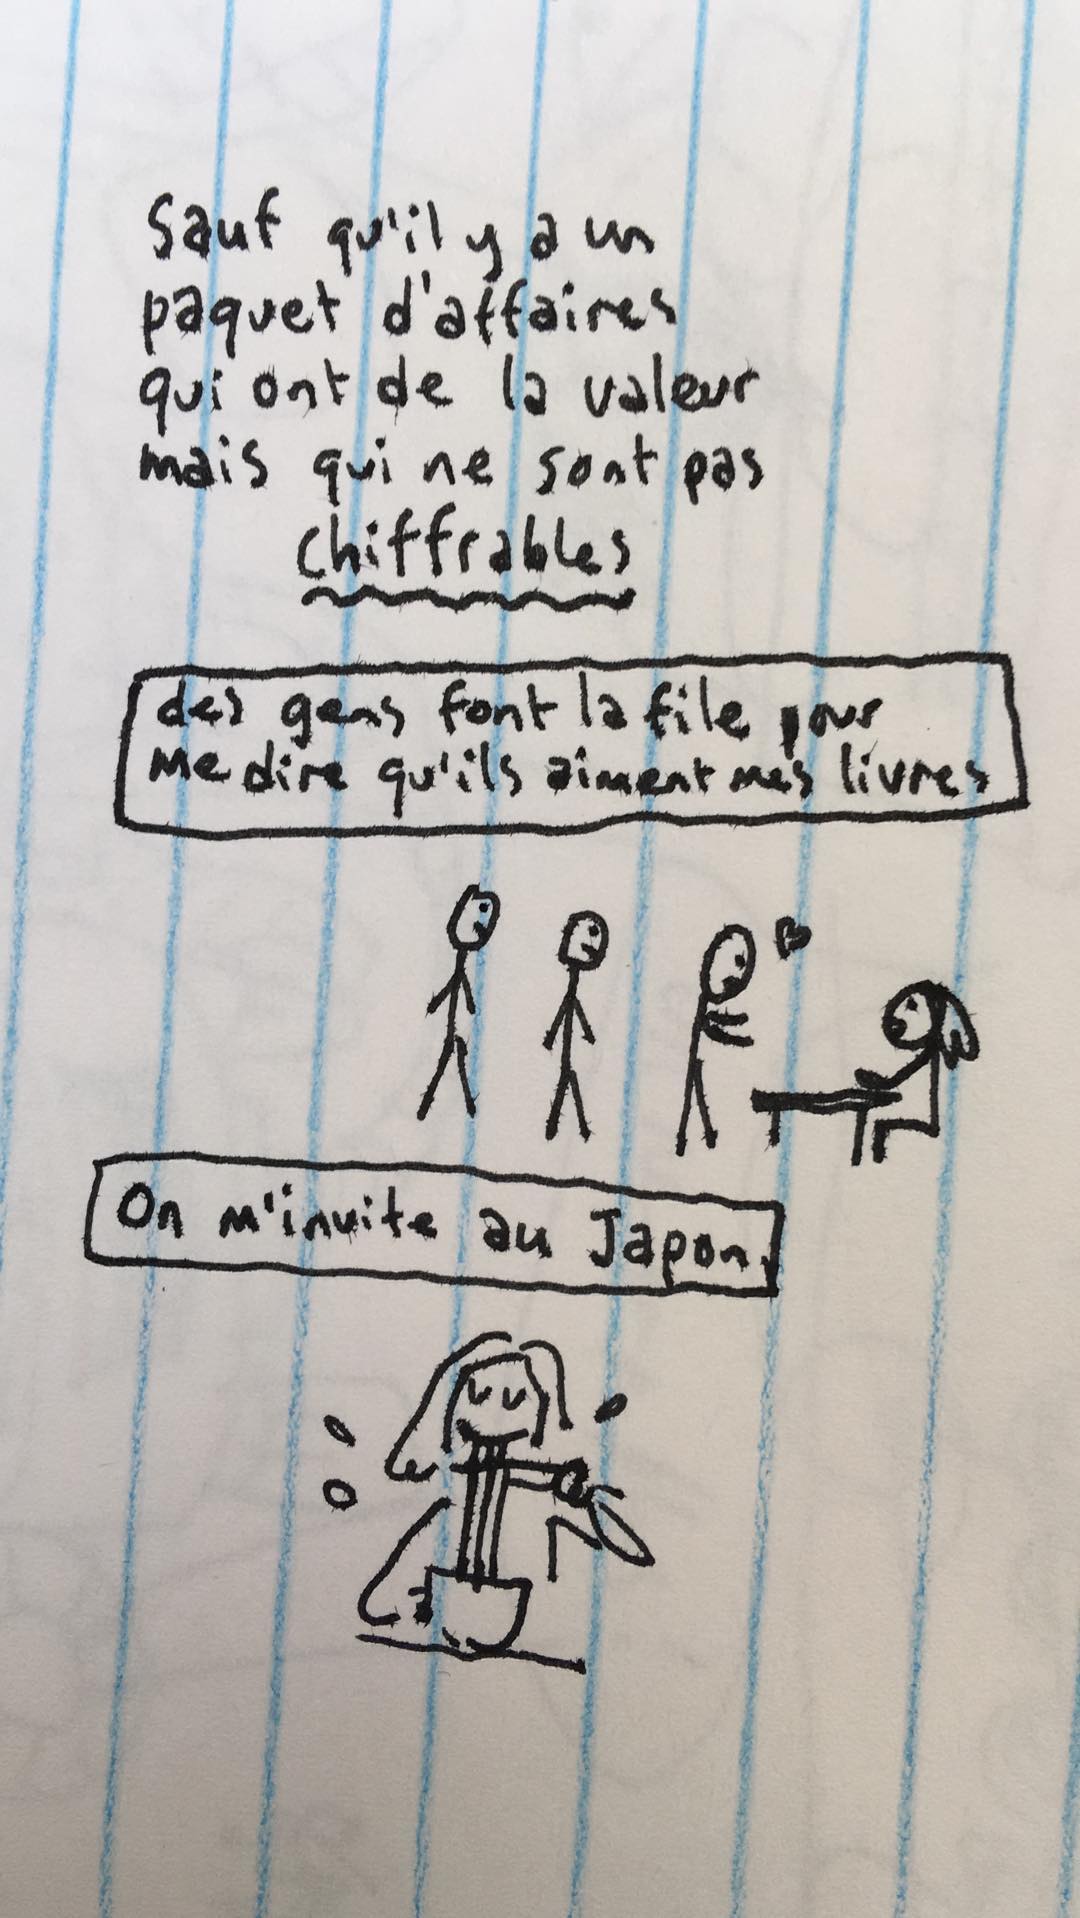 Sauf qu'il y a un
paquet d'affaires
qui ont de la valeur
mais qui ne sont pas
chiffrables
des gens font la file pour
me dire qu'ils aiment mes livres
On m'invite au Japon.